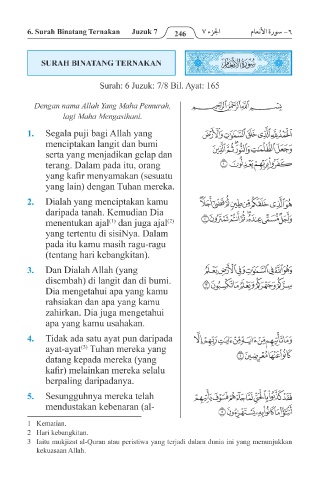 6. Surah Binatang Ternakan Juzuk 7 246 الجزء ٧ ٦ – سورة الأنعام
SURAH BINATANG TERNAKAN
سورة الأنعام
Surah: 6 Juzuk: 7/8 Bil. Ayat: 165
Dengan nama Allah Yang Maha Pemurah,
lagi Maha Mengasihani.
بِسْمِ اللَّهِ الرَّحْمَٰنِ الرَّحِيمِ
1. Segala puji bagi Allah yang
menciptakan langit dan bumi
serta yang menjadikan gelap dan
terang. Dalam pada itu, orang
yang kafir menyamakan (sesuatu
yang lain) dengan Tuhan mereka.
الْحَمْدُ لِلَّهِ الَّذِي خَلَقَ السَّمَاوَاتِ وَالْأَرْضَ
وَجَعَلَ الظُّلُمَاتِ وَالنُّورَ ثُمَّ الَّذِينَ
كَفَرُوا بِرَبِّهِمْ يَعْدِلُونَ ١
2. Dialah yang menciptakan kamu
daripada tanah. Kemudian Dia
menentukan ajal(1) dan juga ajal(2)
yang tertentu di sisiNya. Dalam
pada itu kamu masih ragu-ragu
(tentang hari kebangkitan).
هُوَ الَّذِي خَلَقَكُمْ مِنْ طِينٍ ثُمَّ قَضَىٰ أَجَلًا
وَأَجَلٌ مُسَمًّى عِنْدَهُ ثُمَّ أَنْتُمْ تَمْتَرُونَ ٢
3. Dan Dialah Allah (yang
disembah) di langit dan di bumi.
Dia mengetahui apa yang kamu
rahsiakan dan apa yang kamu
zahirkan. Dia juga mengetahui
apa yang kamu usahakan.
وَهُوَ اللَّهُ فِي السَّمَاوَاتِ وَفِي الْأَرْضِ يَعْلَمُ
سِرَّكُمْ وَجَهْرَكُمْ وَيَعْلَمُ مَا تَكْسِبُونَ ٣
4. Tidak ada satu ayat pun daripada
ayat-ayat(3) Tuhan mereka yang
datang kepada mereka (yang
kafir) melainkan mereka selalu
berpaling daripadanya.
وَمَا تَأْتِيهِمْ مِنْ آيَةٍ مِنْ آيَاتِ رَبِّهِمْ إِلَّا
كَانُوا عَنْهَا مُعْرِضِينَ ٤
5. Sesungguhnya mereka telah
mendustakan kebenaran (al-
فَقَدْ كَذَّبُوا بِالْحَقِّ لَمَّا جَاءَهُمْ فَسَوْفَ يَأْتِيهِمْ
أَنْبَاءُ مَا كَانُوا بِهِ يَسْتَهْزِئُونَ ٥
1 Kematian.
2 Hari kebangkitan.
3 Iaitu mukjizat al-Quran atau peristiwa yang terjadi dalam dunia ini yang menunjukkan
kekuasaan Allah.